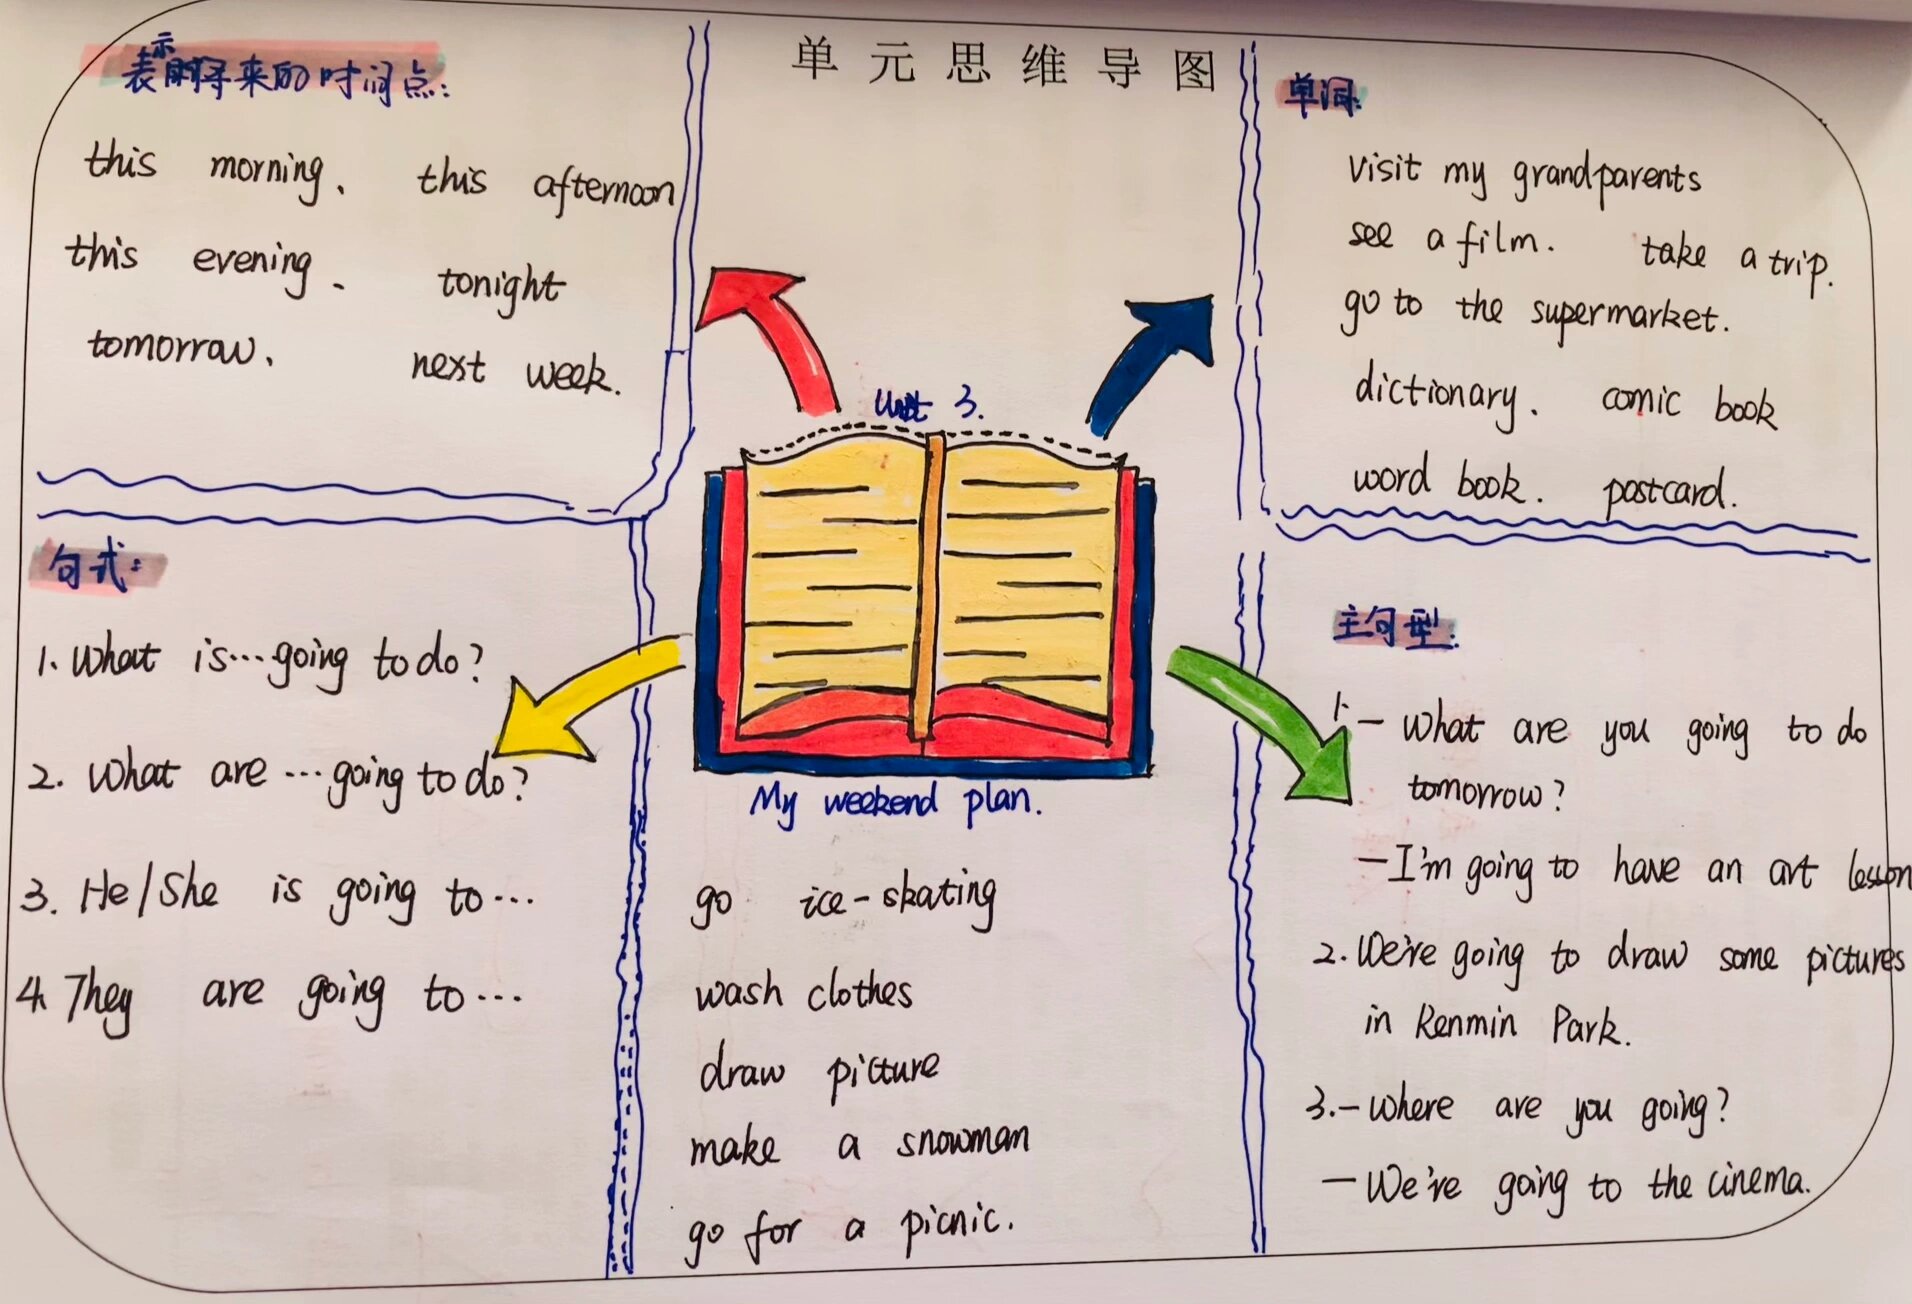 单元思维导图
表示将来的时间点:
this morning、 this afternoon
this evening、 tonight
tomorrow、 next week.
单词:
visit my grandparents
see a film. take a trip.
go to the supermarket.
dictionary. comic book
word book. postcard.
Unit 3.
My weekend plan.
go ice-skating
wash clothes
draw picture
make a snowman
go for a picnic.
句式:
1. What is…going to do?
2. What are …going to do?
3. He/She is going to…
4. They are going to…
主句型:
1.— What are you going to do
tomorrow?
—I'm going to have an art lesson
2. We're going to draw some pictures
in Renmin Park.
3.— Where are you going?
— We're going to the cinema.